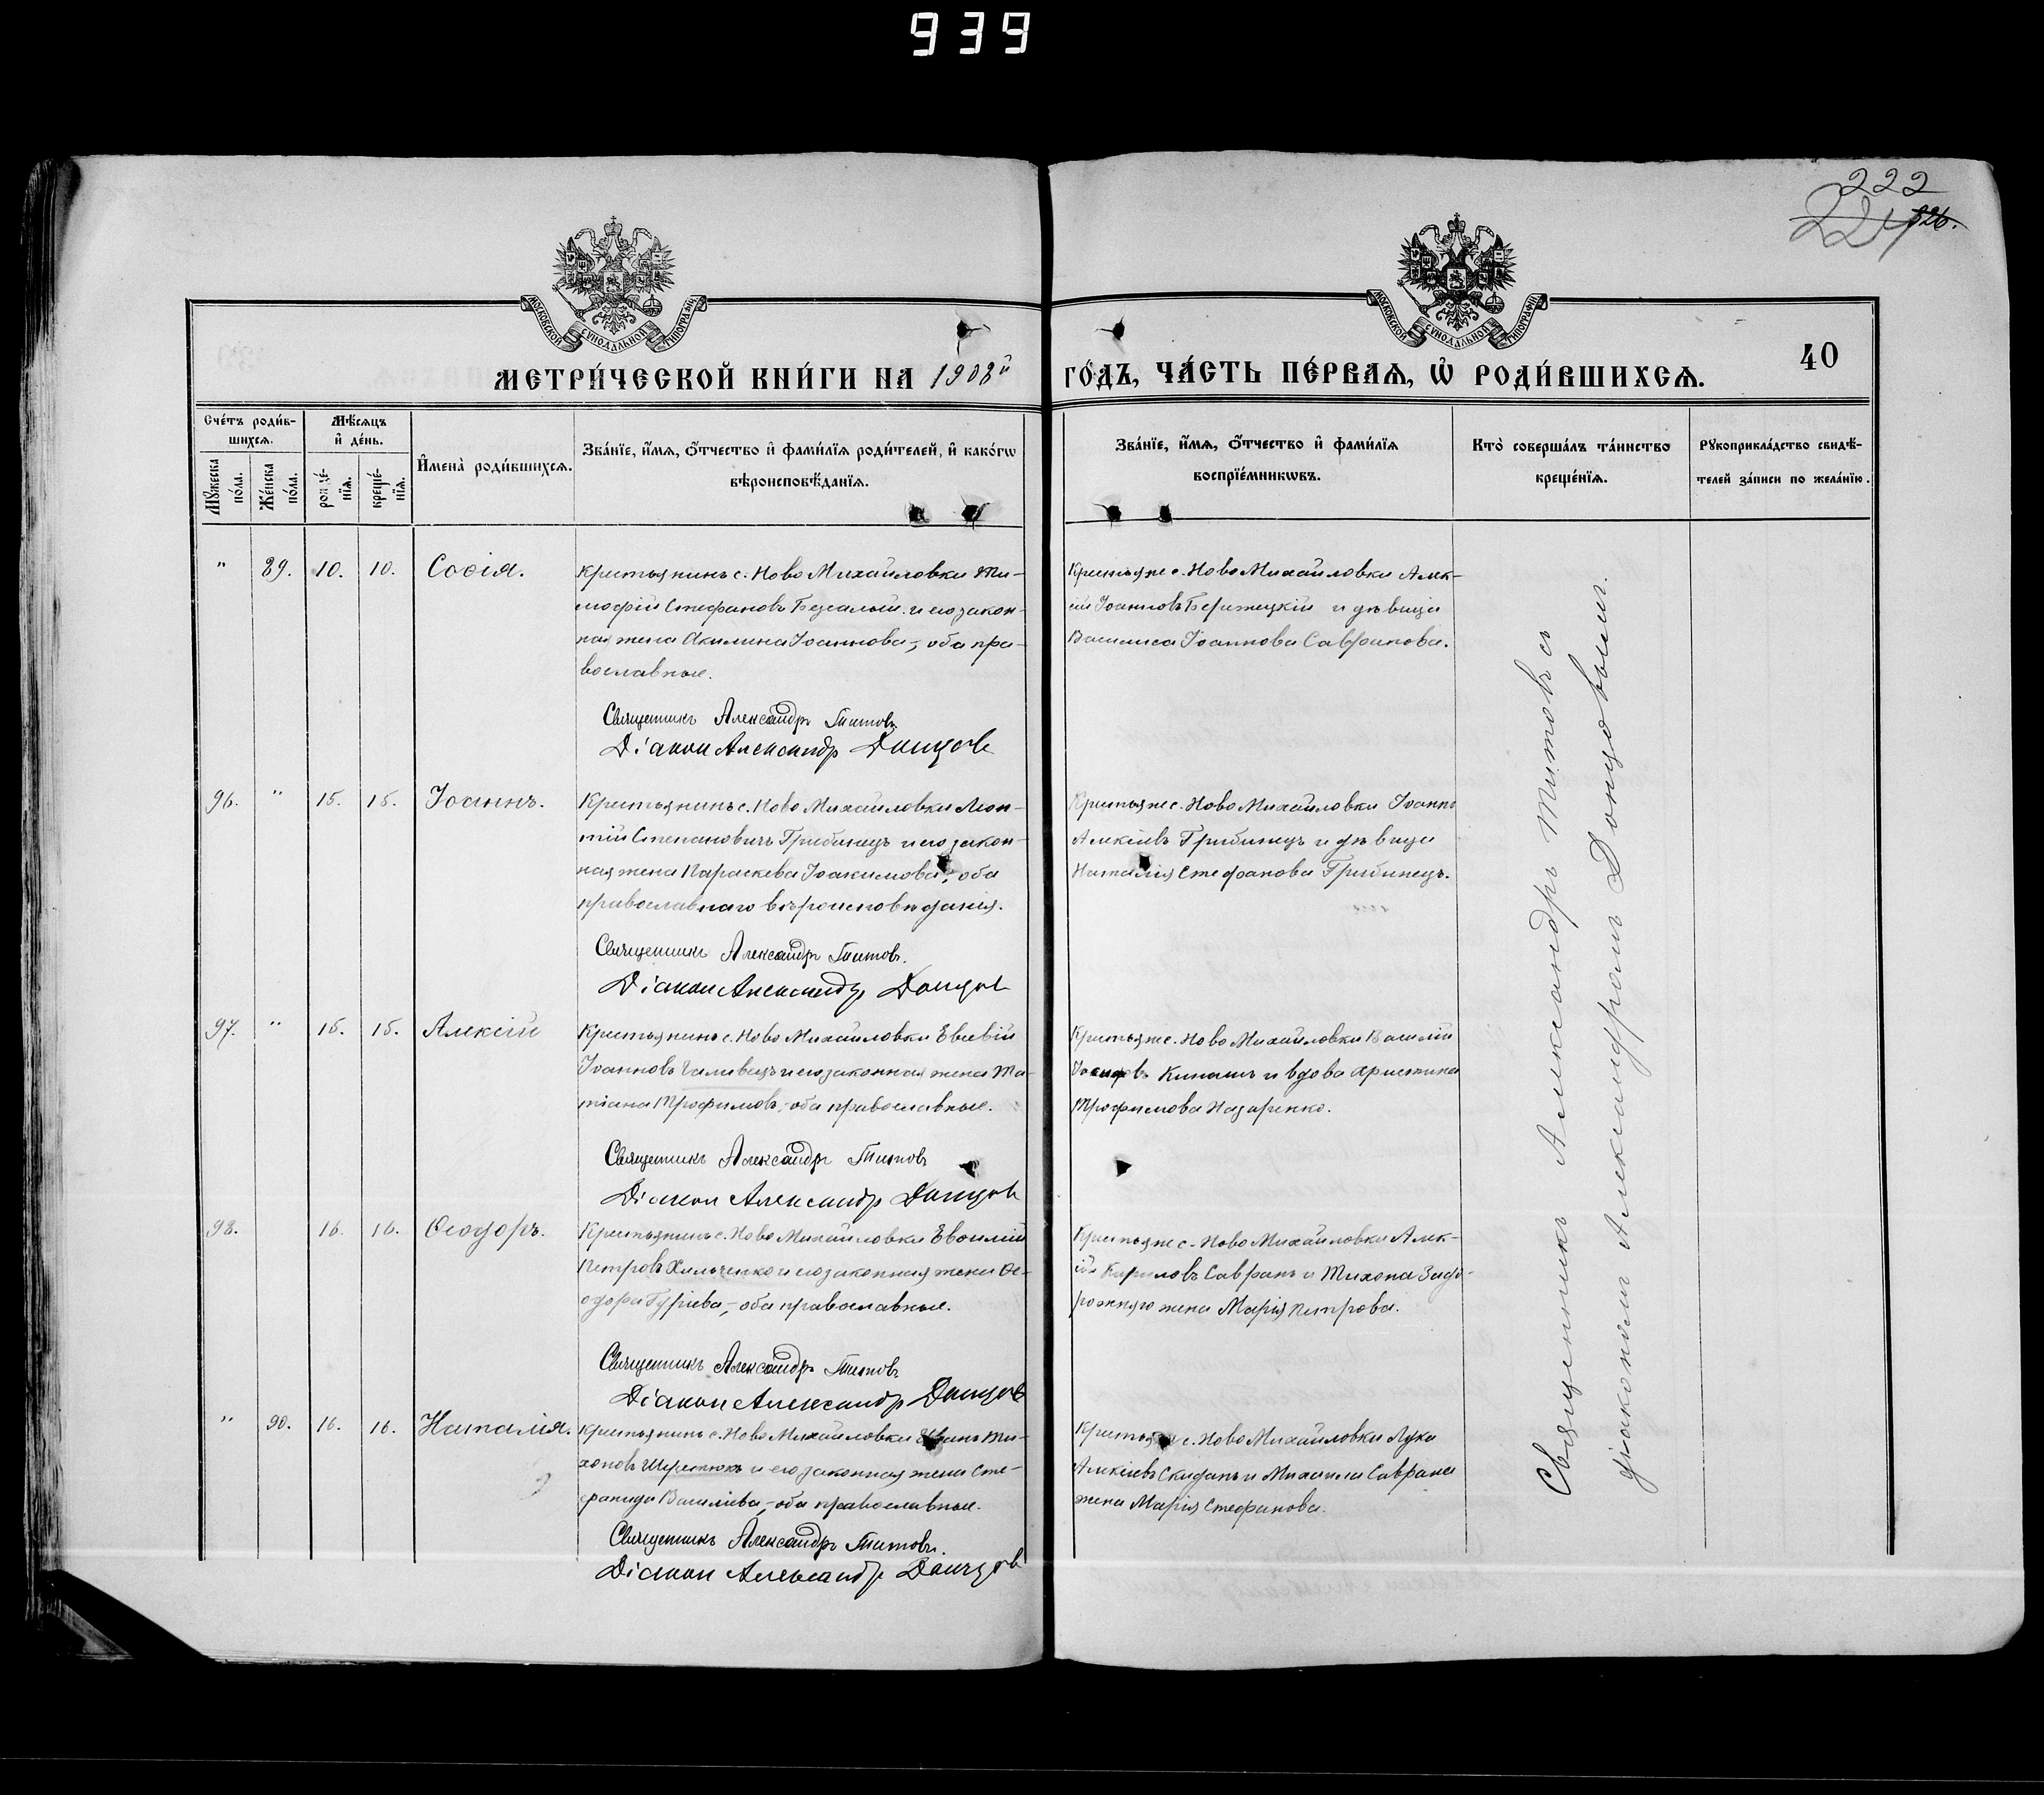 939
222
224
826.
МОСКОВСКОЙ СѴНОДАЛЬНОЙ ТИПОГРАФІИ
МОСКОВСКОЙ СѴНОДАЛЬНОЙ ТИПОГРАФІИ
МЕТРИ́ЧЕСКОЙ КНИ́ГИ НА 1908й ГО́ДЪ, ЧА́СТЬ ПЕ́РВАѦ, Ѡ҆ РОДИ́ВШИХСѦ.
40
Сче́тъ роди́в-
шихсѧ.
Мѣ́сѧцъ
и҆ де́нь.
И҆мена̀ роди́вшихсѧ.
Зва́нїе, и҆́мѧ, ѻ҆́тчество и҆ фами́лїѧ роди́телей, и҆ како́гѡ
вѣроисповѣ́данїѧ.
Зва́нїе, и҆́мѧ, ѻ҆́тчество и҆ фами́лїѧ
воспрїе́мникѡвъ.
Кто̀ соверша́лъ та́инство
креще́нїѧ.
Рꙋкоприкла́дство свидѣ́-
телей за́писи по жела́нїю.
Мꙋ́жеска
по́ла.
Же́нска
по́ла.
рожде́-
нїѧ.
креще́-
нїѧ.
" 89. 10. 10. Софія.
Крестьянинъ с. Ново Михайловки Ти-
мофій Стефановъ и его закон-
ная жена Акилина Іоаннова, оба пра-
вославные.
Священникъ Александръ Титовъ
Діакон Александр Донцов
Крестьяне с. Ново Михайловки Алек-
сій Іоанновъ Бережецкій и дѣвица
Василиса Іоаннова Савранова.
96. " 15. 15. Іоаннъ.
Крестьянинъ с. Ново Михайловки Леон-
тій Степановичъ Грибинецъ и его закон-
ная жена Параскева Іоакимова, оба
православнаго вѣроисповѣданія.
Священникъ Александръ Титов.
Діакон Александр Донцов
Крестьяне с. Ново Михайловки Іоаннъ
Алексіевъ Грибинецъ и дѣвица
Наталія Стефанова Грибинецъ.
97. " 15. 15. Алексій
Крестьянинъ с. Ново Михайловки Евсевій
Іоанновъ и его законная жена Та-
тіана Трофимова, оба православные.
Священникъ Александръ Титовъ
Діакон Александр Донцов
Крестьяне с. Ново Михайловки Василій
Іосифовъ Кинашъ и вдова Христина
Трофимова Назаренко.
98. 16. 16. Ѳеодоръ.
Крестьянинъ с. Ново Михайловки
Петровъ Хильченко и его законная жена Ѳе-
одора Гуріева, оба православные.
Священникъ Александръ Титовъ
Діакон Александр Донцов
Крестьяне с. Ново Михайловки Алек-
сій Кириловъ Савранъ и Тихона Задо-
рожняго жена Марія Петрова.
" 90. 16. 16. Наталія.
Крестьянинъ с. Ново Михайловки Ти-
хоновъ Шерстюкъ и его законная жена Сте-
фанида Василіева, оба православные.
Священникъ Александръ Титовъ.
Діакон Александр Донцов
Крестьяне с. Ново Михайловки Лука
Алексіевъ Скиданъ и Михаила Саврана
жена Марія Стефанова.
Священникъ Александръ Титовъ съ
діакономъ Александромъ Донцовымъ.